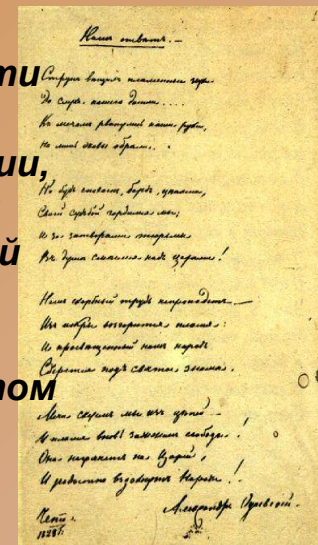 ти
ии,
й
том
Струнъ вещихъ пламенные
До слуха нашего дошли....
Къ мечамъ рванулись наши руки,
Но лишь оковы обрѣли.
Но будь спокоенъ, бардъ, цѣпями,
Своей судьбой гордимся мы;
И за затворами тюрьмы
Въ душѣ смѣемся надъ царями!
Нашъ скорбный трудъ не пропадетъ —
Изъ искры возгорится пламя:
И просвѣщенный нашъ народъ
Сберется подъ святое знамя.
Мечи скуемъ мы изъ цѣпей
И пламя вновь зажжемъ свободы!
Она нагрянетъ на Царей,
И радостно вздохнутъ Народы!
Александръ Одоевскій.